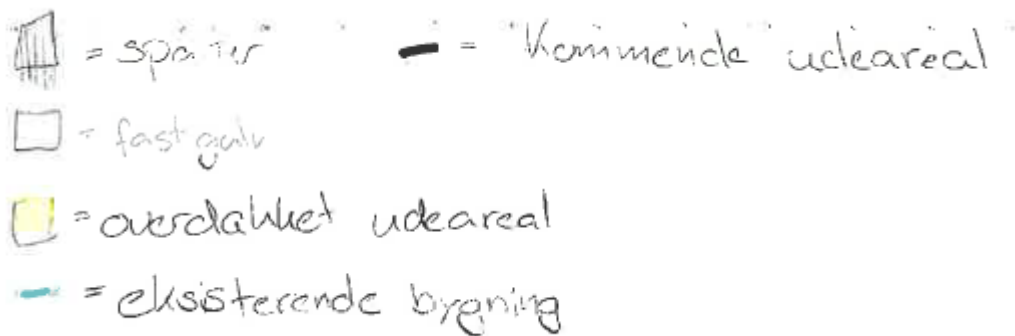 = "Kommende udeareal"
= fast gulv
= overdakket udeareal
= eksisterende bygning